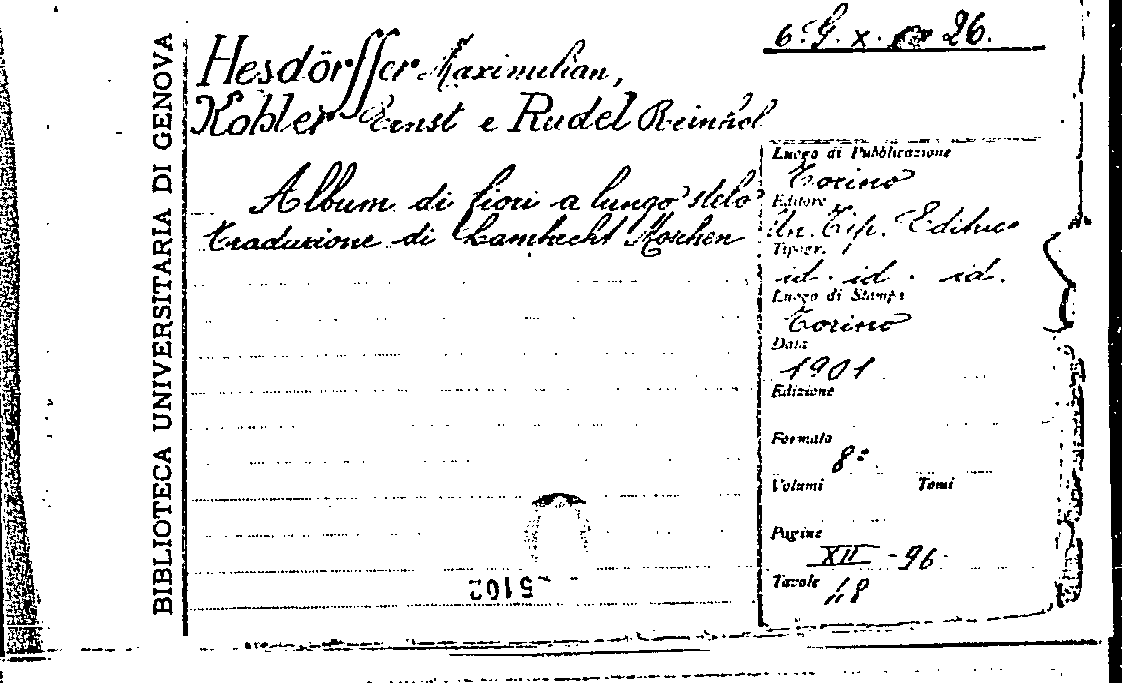 BIBLIOTECA UNIVERSITARIA DI GENOVA
6.G.x. 26.
Hesdörffer Maximilian,
Kohler Ernst e Rudel Reinhol
Album di fiori a lungo stelo
traduzione di Lambrecht Moschen
Luogo di Pubblicazione
Torino
Editore
Un. Tip. Editrice
Tipogr.
id. id. id.
Luogo di Stampa
Torino
Data
1901
Edizione
Formato
8º
Volumi Tomi
Pagine
XII - 96.
Tavole
48
5102